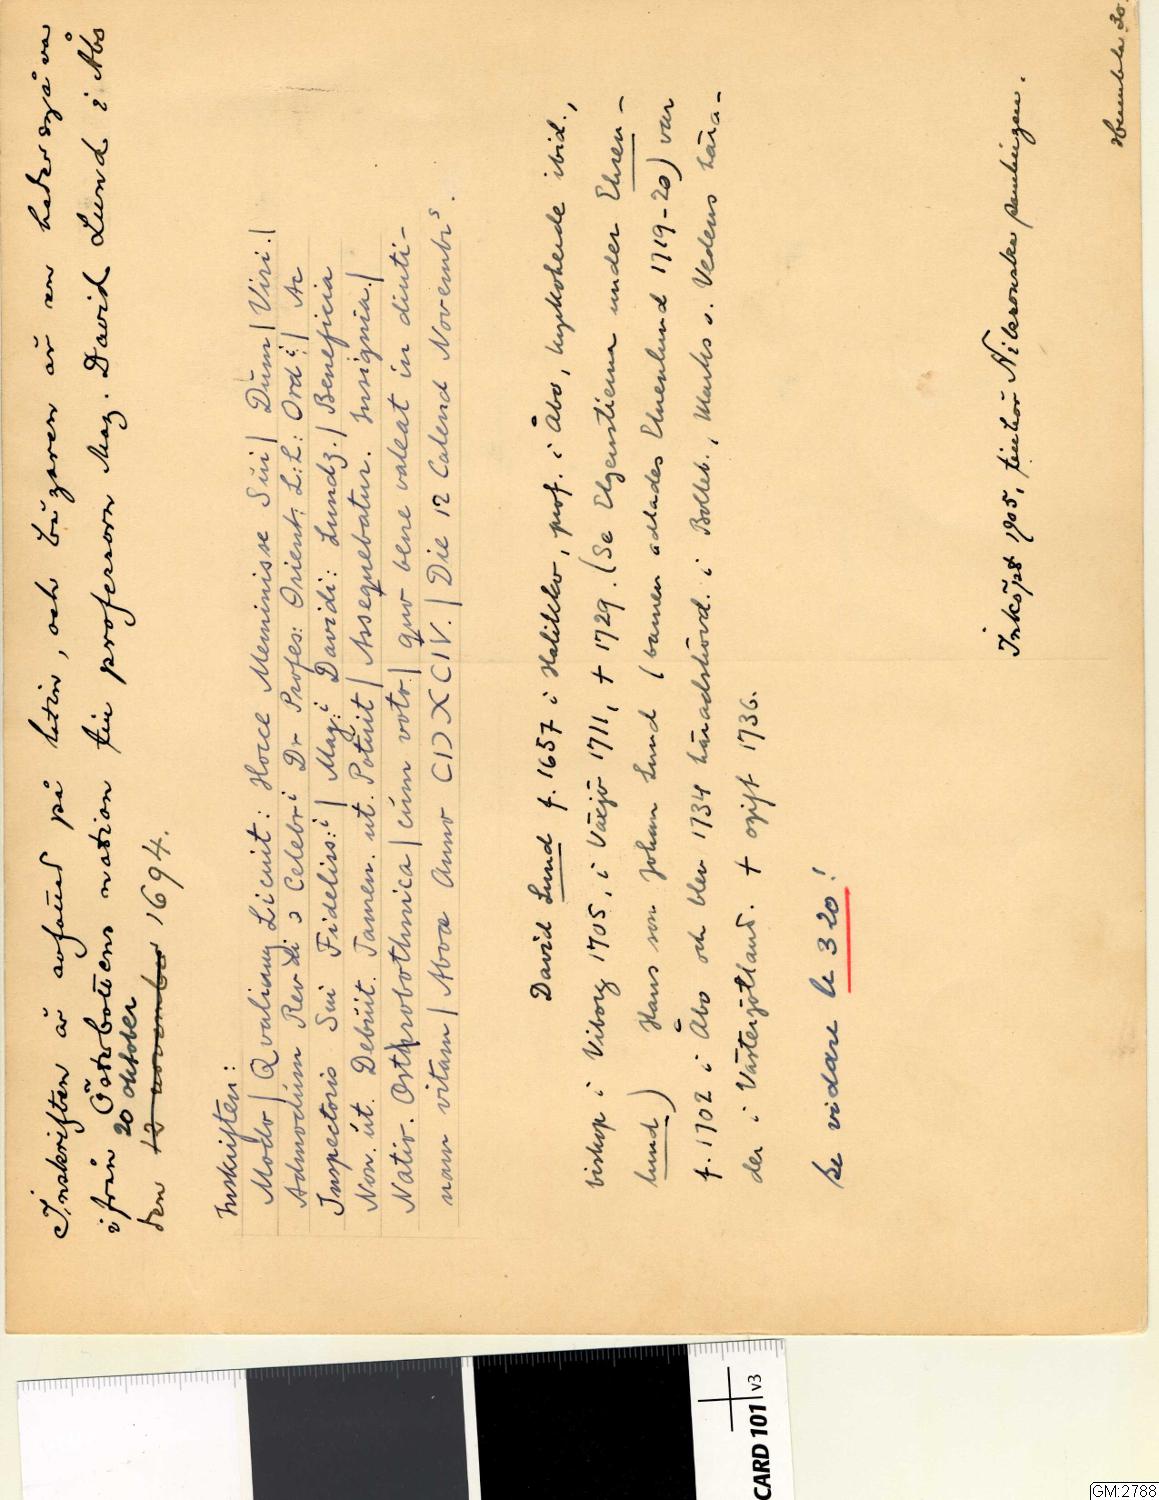 Inskriften är avfattad på latin, och bägaren är en hedersgåva
ifrån Österbottens nation till professorn Mag. David Lund i Åbo
20 oktober
den 12 november 1694.
Inskriften:
Modo | Qvalinug Licuit: Hocce Meminisse Sui | Dum | Viri. |
Admodum Revdi Celebri Dr Profes: Orient: L:L: Ord: i | Ac
Inspectoris Sui Fideliss: i | Mag: i Davidi: Lundz. | Beneficia
Non. ut. Debuit. Tamen. ut. Potuit | Assequebatur. Insignia. |
Natio. Osthrobothnica | cum voto | quo bene valeat in diuti-
nam vitam | Aboæ Anno CIƆXCIV. | Die 12 Calend Novembrs.
David Lund f. 1657 i Halikko, prof. i Åbo, kyrkoherde ibid.,
biskop i Viborg 1705, i Växjö 1711, † 1729. (Se Elgenstierna under Ehren-
lund) Hans son Johan Lund (barnen adlades Ehrenlund 1719-20) var
f. 1702 i Åbo och blev 1734 häradshövd. i Bolleb., Marks o. Vedens hära-
der i Västergötland. † ogift 1736.
Se vidare bl 320!
Inköpt 1905, tillhör Nilsonska samlingen.
30.
CARD 101 v3
GM:2788